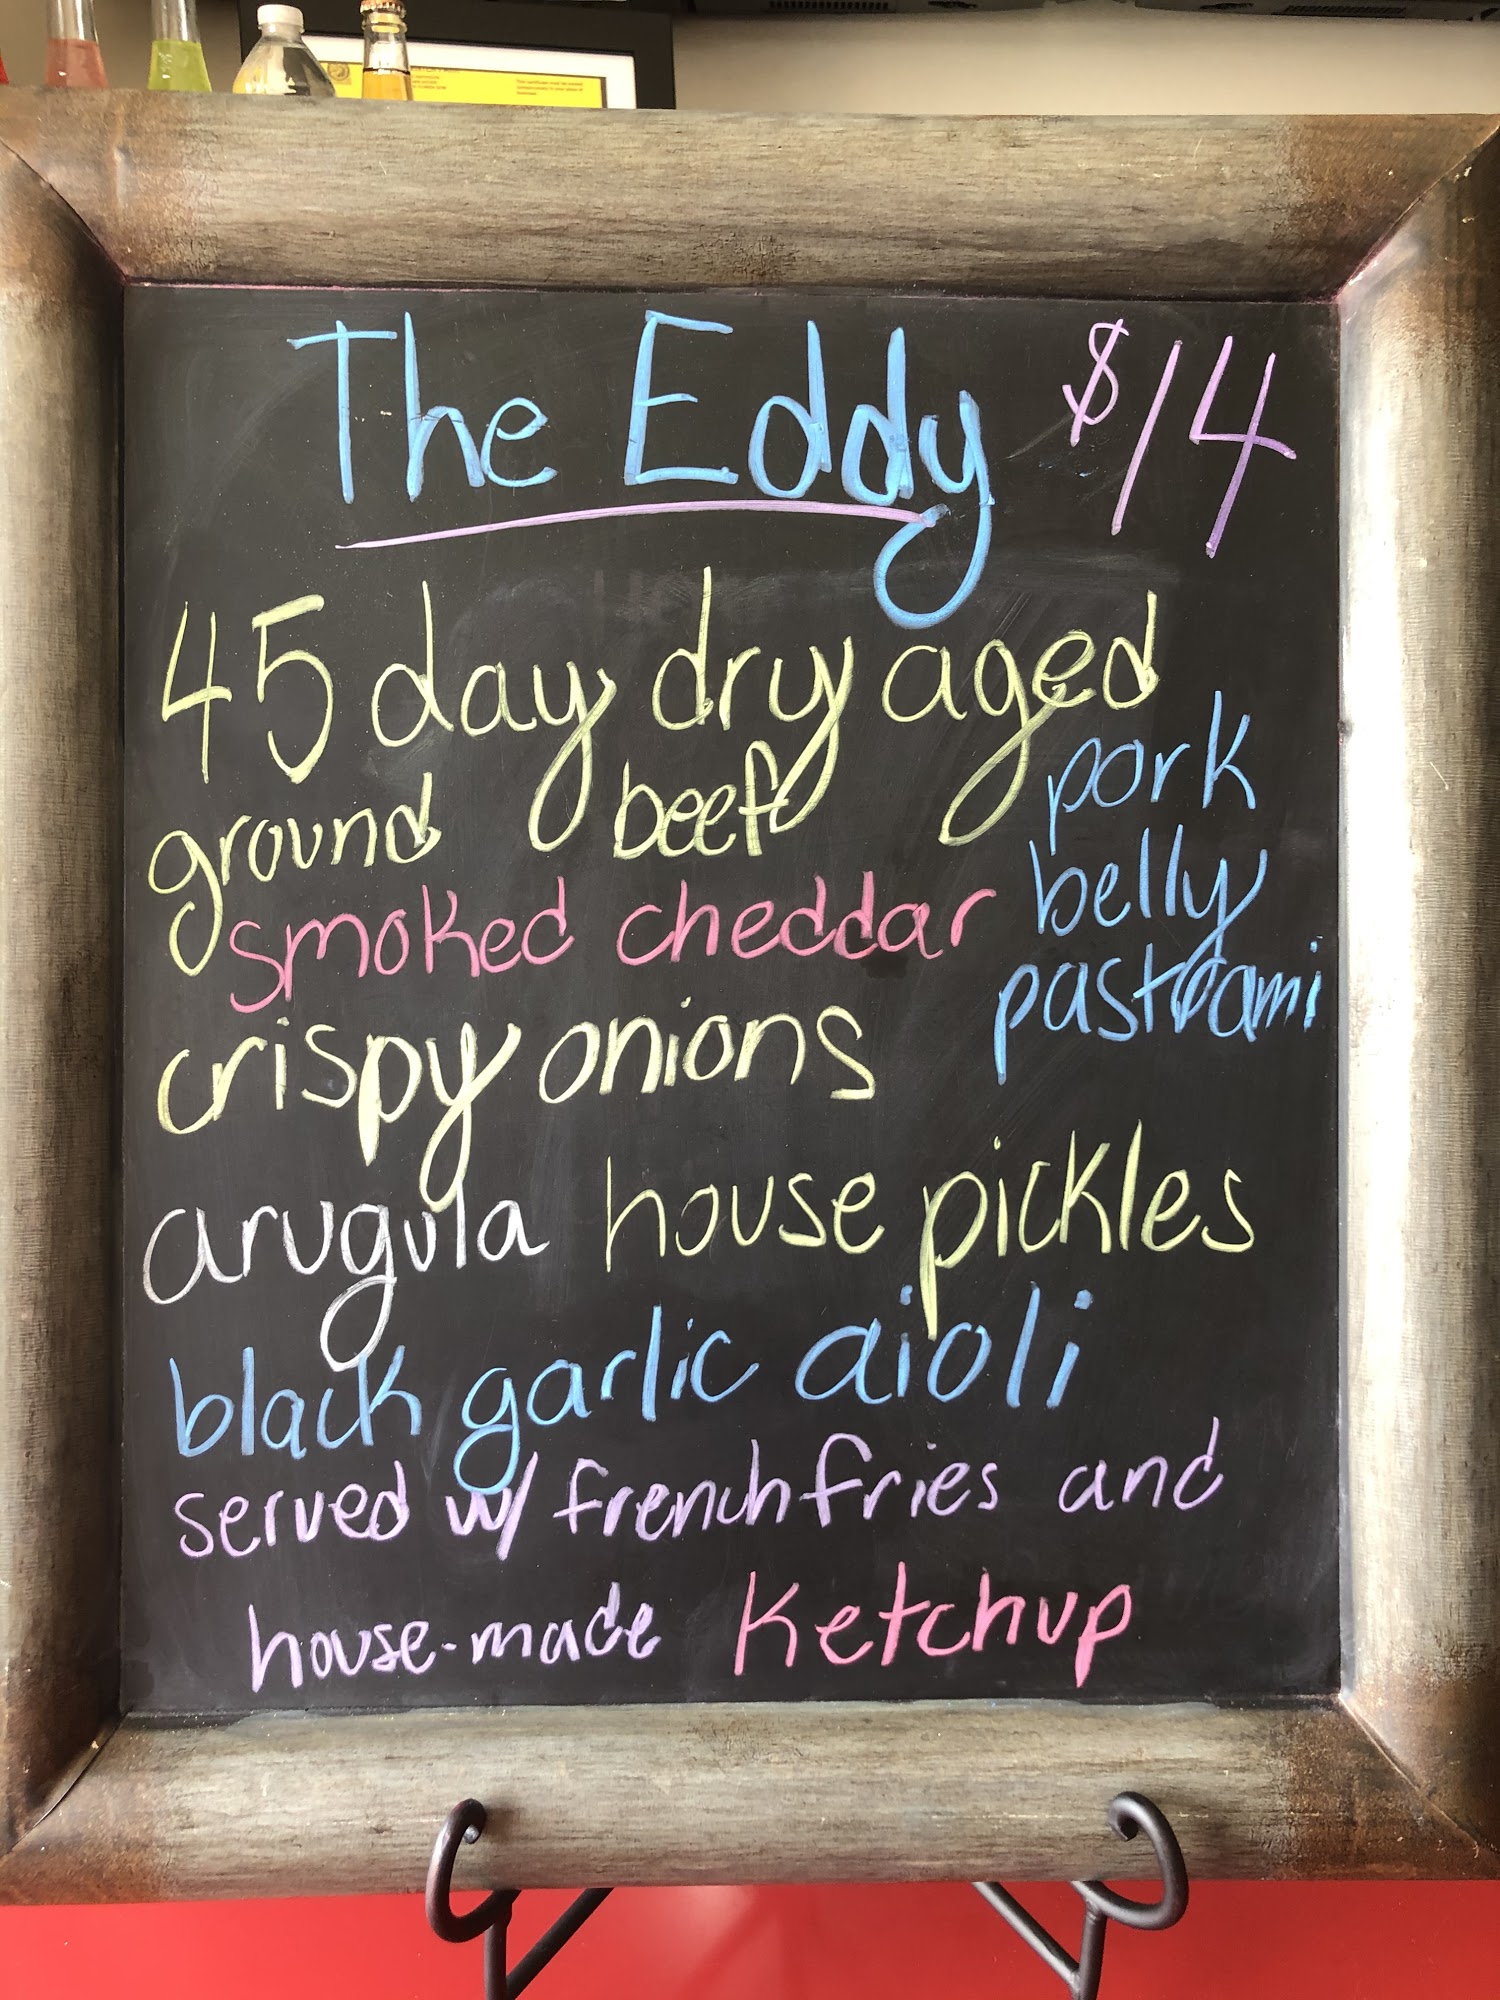 The Eddy $14
45 day dry aged
ground beef
pork
belly
pastrami
smoked cheddar
crispy onions
arugula house pickles
black garlic aioli
served w/ french fries and
house-made Ketchup